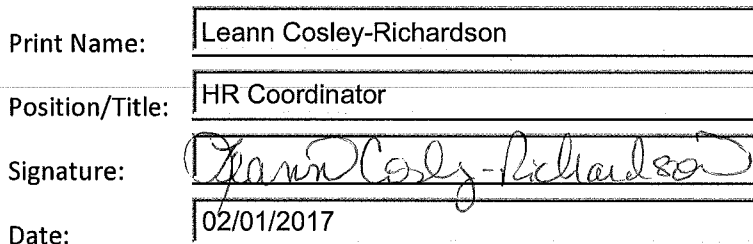 Print Name: Leann Cosley-Richardson
Position/Title: HR Coordinator
Signature: Leann Cosley-Richardson
Date: 02/01/2017